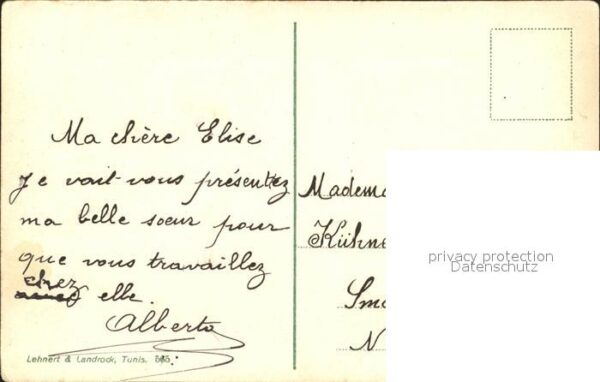 Ma chère Elise
Je vait vous présentez
ma belle soeur pour
que vous travaillez
chez elle.
Alberto
Lehnert & Landrock, Tunis.
Kühne
privacy protection
Datenschutz